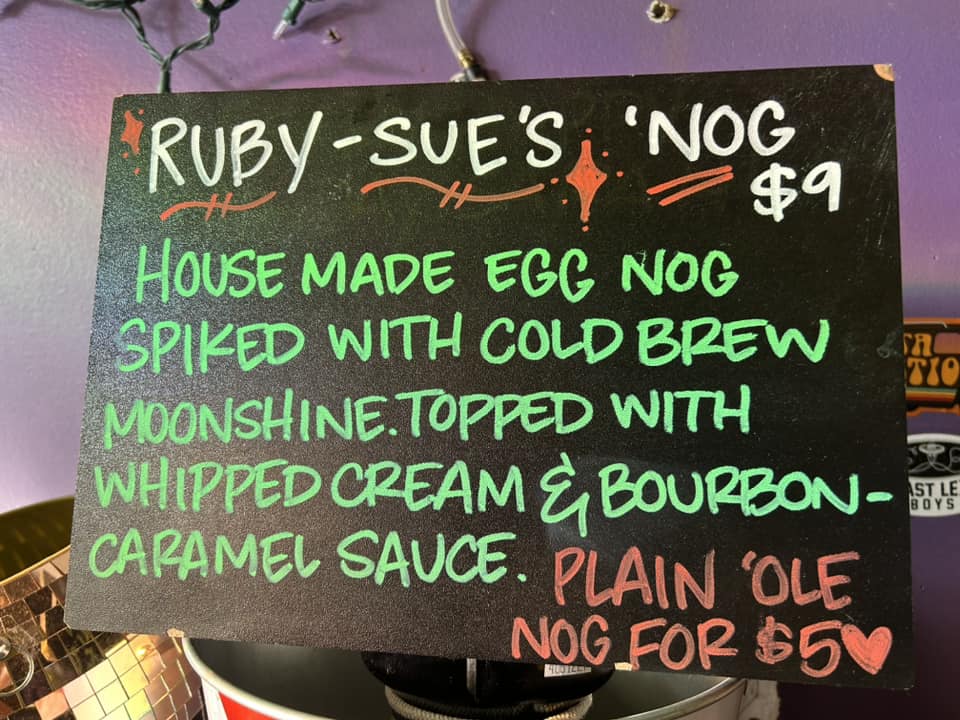 RUBY-SUE'S 'NOG
$9
HOUSE MADE EGG NOG
SPIKED WITH COLD BREW
MOONSHINE. TOPPED WITH
WHIPPED CREAM & BOURBON-
CARAMEL SAUCE.
PLAIN 'OLE
NOG FOR $5
BOYS